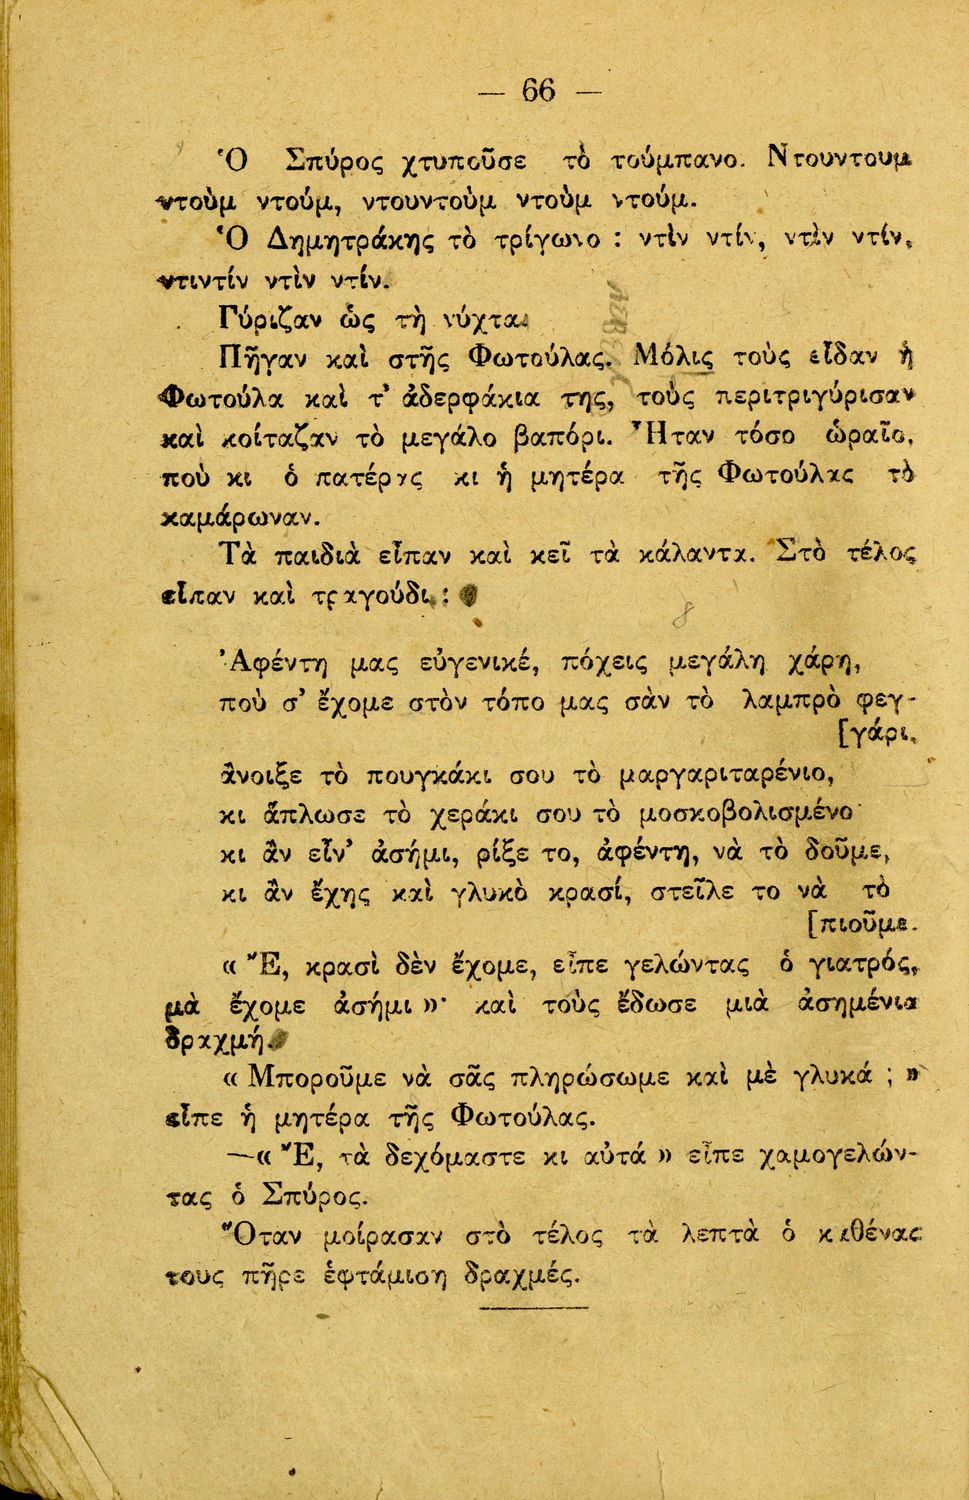 — 66 —
Ὁ Σπύρος χτυποῦσε τὸ τούμπανο. Ντουντουμ
ντοὺμ ντούμ, ντουντοὺμ ντοὺμ ντούμ.
Ὁ Δημητράκης τὸ τρίγωνο : ντὶν ντίν, ντὶν ντίν,
ντιντίν ντὶν ντίν.
Γύριζαν ὡς τὴ νύχτα.
Πῆγαν καὶ στῆς Φωτούλας. Μόλις τοὺς εἶδαν ἡ
Φωτούλα καὶ τ' ἀδερφάκια της, τοὺς περιτριγύρισαν
καὶ κοίταζαν τὸ μεγάλο βαπόρι. Ἦταν τόσο ὡραῖο,
ποὺ κι ὁ πατέρας κι ἡ μητέρα τῆς Φωτούλας τὸ
καμάρωναν.
Τὰ παιδιὰ εἶπαν καὶ κεῖ τὰ κάλαντα. Στὸ τέλος
εἶπαν καὶ τραγούδι :
8
Ἀφέντη μας εὐγενικέ, πόχεις μεγάλη χάρη,
ποὺ σ' ἔχομε στὸν τόπο μας σὰν τὸ λαμπρὸ φεγ-
[γάρι,
ἄνοιξε τὸ πουγκάκι σου τὸ μαργαριταρένιο,
κι ἅπλωσε τὸ χεράκι σου τὸ μοσκοβολισμένο·
κι ἂν εἶν' ἀσήμι, ρίξε το, ἀφέντη, νὰ τὸ δοῦμε,
κι ἂν ἔχης καὶ γλυκὸ κρασί, στεῖλε το νὰ τὸ
[πιοῦμε.
« Ἔ, κρασὶ δὲν ἔχομε, εἶπε γελώντας ὁ γιατρός,
μὰ ἔχομε ἀσήμι »· καὶ τοὺς ἔδωσε μιὰ ἀσημένια
δραχμή.
« Μποροῦμε νὰ σᾶς πληρώσωμε καὶ μὲ γλυκά ; »
εἶπε ἡ μητέρα τῆς Φωτούλας.
—« Ἔ, τὰ δεχόμαστε κι αὐτά » εἶπε χαμογελών-
τας ὁ Σπύρος.
Ὅταν μοίρασαν στὸ τέλος τὰ λεπτὰ ὁ καθένας
τους πῆρε ἑφτάμιση δραχμές.